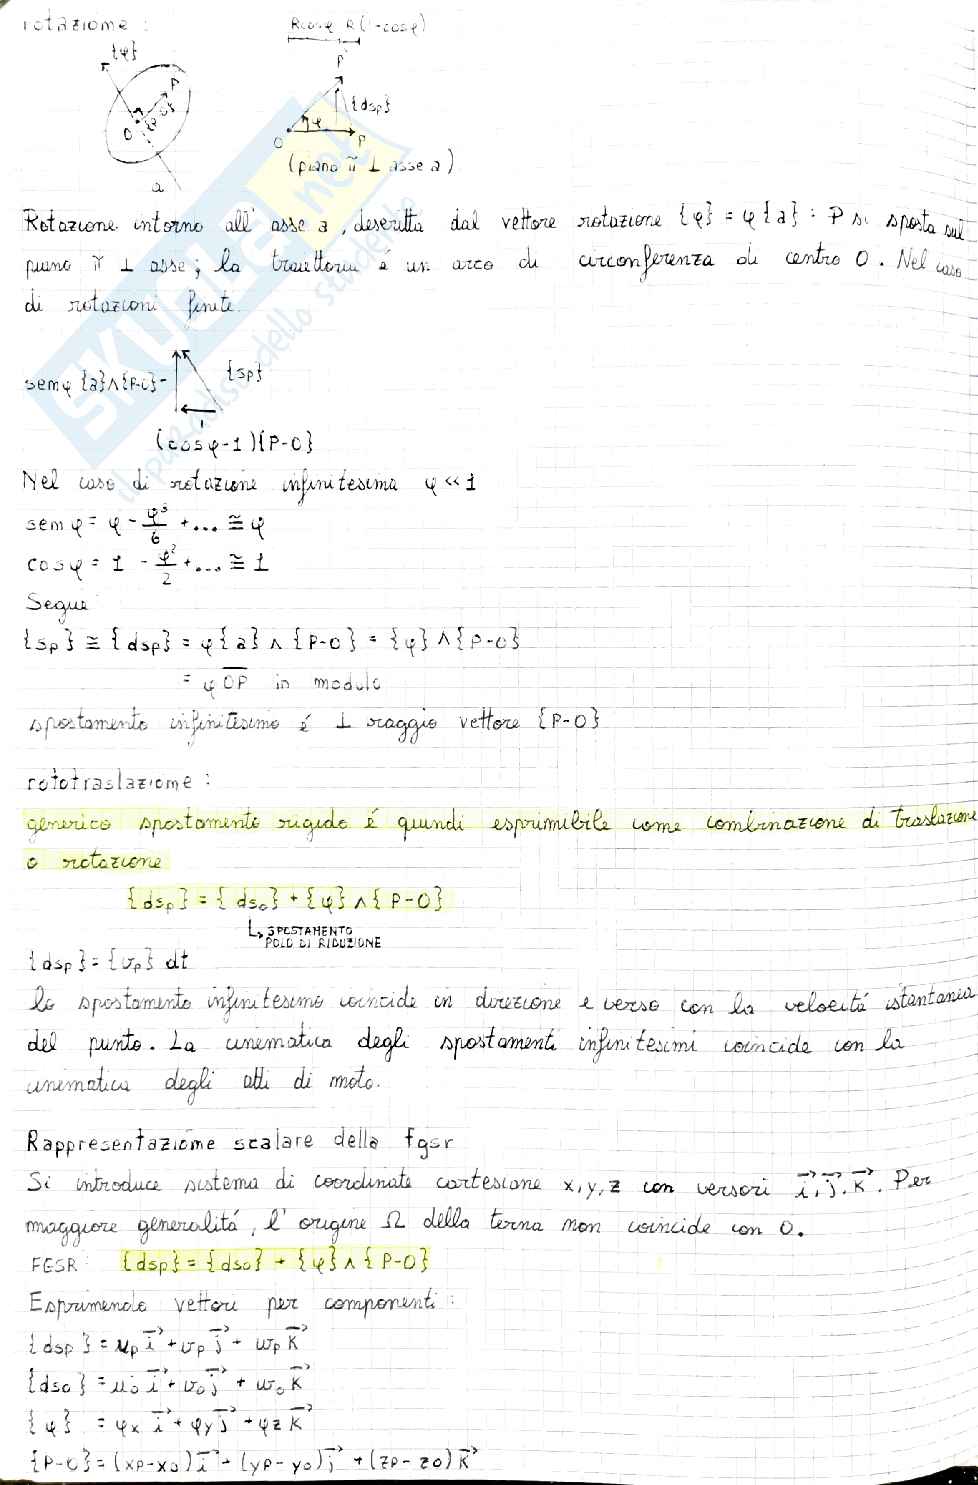 rotazione :
Rcosφ R(1-cosφ)
{φ}
P'
P
{P-O}
O
a
{dsp}
φ
O
P
(piano π ⊥ asse a)
Rotazione intorno all' asse a, descritta dal vettore rotazione {φ} = φ{a} : P si sposta sul
piano π ⊥ asse; la traiettoria é un arco di circonferenza di centro O. Nel caso
di rotazioni finite.
senφ {a}∧{P-O}
{sp}
(cosφ-1){P-O}
Nel caso di rotazione infinitesima φ<<1
senφ = φ - φ³/6 + ... ≅ φ
cosφ = 1 - φ²/2 + ... ≅ 1
Segue
{sp} ≅ {dsp} = φ{a} ∧ {P-O} = {φ} ∧ {P-O}
= φ OP in modulo
spostamento infinitesimo é ⊥ raggio vettore {P-O}
rototraslazione :
generico spostamento rigido é quindi esprimibile come combinazione di traslazione
o rotazione
{dsp} = {dso} + {φ} ∧ {P-O}
↳ SPOSTAMENTO
POLO DI RIDUZIONE
{dsp} = {vp} dt
lo spostamento infinitesimo coincide in direzione e verso con la velocitá istantanea
del punto. La cinematica degli spostamenti infinitesimi coincide con la
cinematica degli atti di moto.
Rappresentazione scalare della fgsr
Si introduce sistema di coordinate cartesiane x,y,z con versori i⃗, j⃗, k⃗. Per
maggiore generalitá, l'origine Ω della terna non coincide con O.
FGSR: {dsp} = {dso} + {φ} ∧ {P-O}
Esprimendo vettori per componenti :
{dsp} = up i⃗ + vp j⃗ + wp k⃗
{dso} = uo i⃗ + vo j⃗ + wo k⃗
{φ} = φx i⃗ + φy j⃗ + φz k⃗
{P-O} = (xp-xo) i⃗ + (yp-yo) j⃗ + (zp-zo) k⃗
SKUOLA.net
il paradiso dello studente